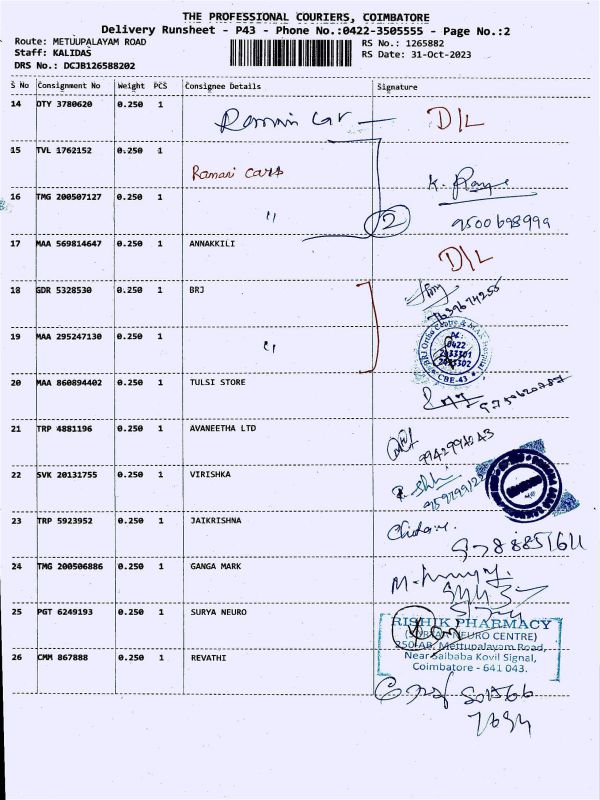 THE PROFESSIONAL COURIERS, COIMBATORE
Delivery Runsheet - P43 - Phone No.:0422-3505555 - Page No.:2
Route: METUUPALAYAM ROAD
RS No.: 1265882
Staff: KALIDAS
RS Date: 31-Oct-2023
DRS No.: DCJB126588202
S No Consignment No Weight PCS Consignee Details Signature
14 OTY 3780620 0.250 1 Raman car — D/L
15 TVL 1762152 0.250 1 Ramani cars
16 TMG 200507127 0.250 1 " 2
9500698999
17 MAA 569814647 0.250 1 ANNAKKILI D/L
18 GDR 5328530 0.250 1 BRJ
19 MAA 295247130 0.250 1 "
0422
CBE-43
20 MAA 860894402 0.250 1 TULSI STORE
21 TRP 4881196 0.250 1 AVANEETHA LTD
22 SVK 20131755 0.250 1 VIRISHKA
23 TRP 5923952 0.250 1 JAIKRISHNA
24 TMG 200506886 0.250 1 GANGA MARK
25 PGT 6249193 0.250 1 SURYA NEURO
RISHIK PHARMACY
(SURYAA NEURO CENTRE)
250-AB, Mettupalayam Road,
Near Saibaba Kovil Signal,
Coimbatore - 641 043.
26 CMM 867888 0.250 1 REVATHI